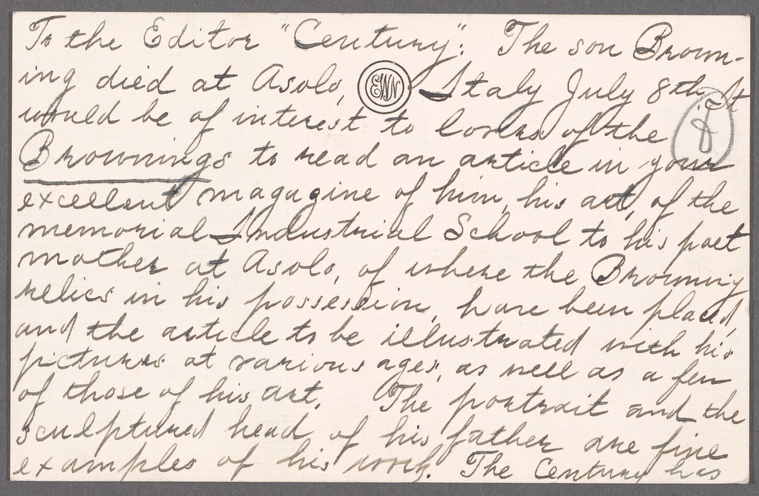 To the Editor "Century": The son Brown-
ing died at Asolo, Italy July 8th. It
would be of interest to lovers of the
Brownings to read an article in your
excellent magazine of him, his art, of the
memorial Industrial School to his poet
mother at Asolo, of where the Browning
relics in his possession, have been placed,
and the article to be illustrated with his
pictures at various ages, as well as a few
of those of his art. The portrait and the
sculptured head of his father are fine
examples of his work. The Century has